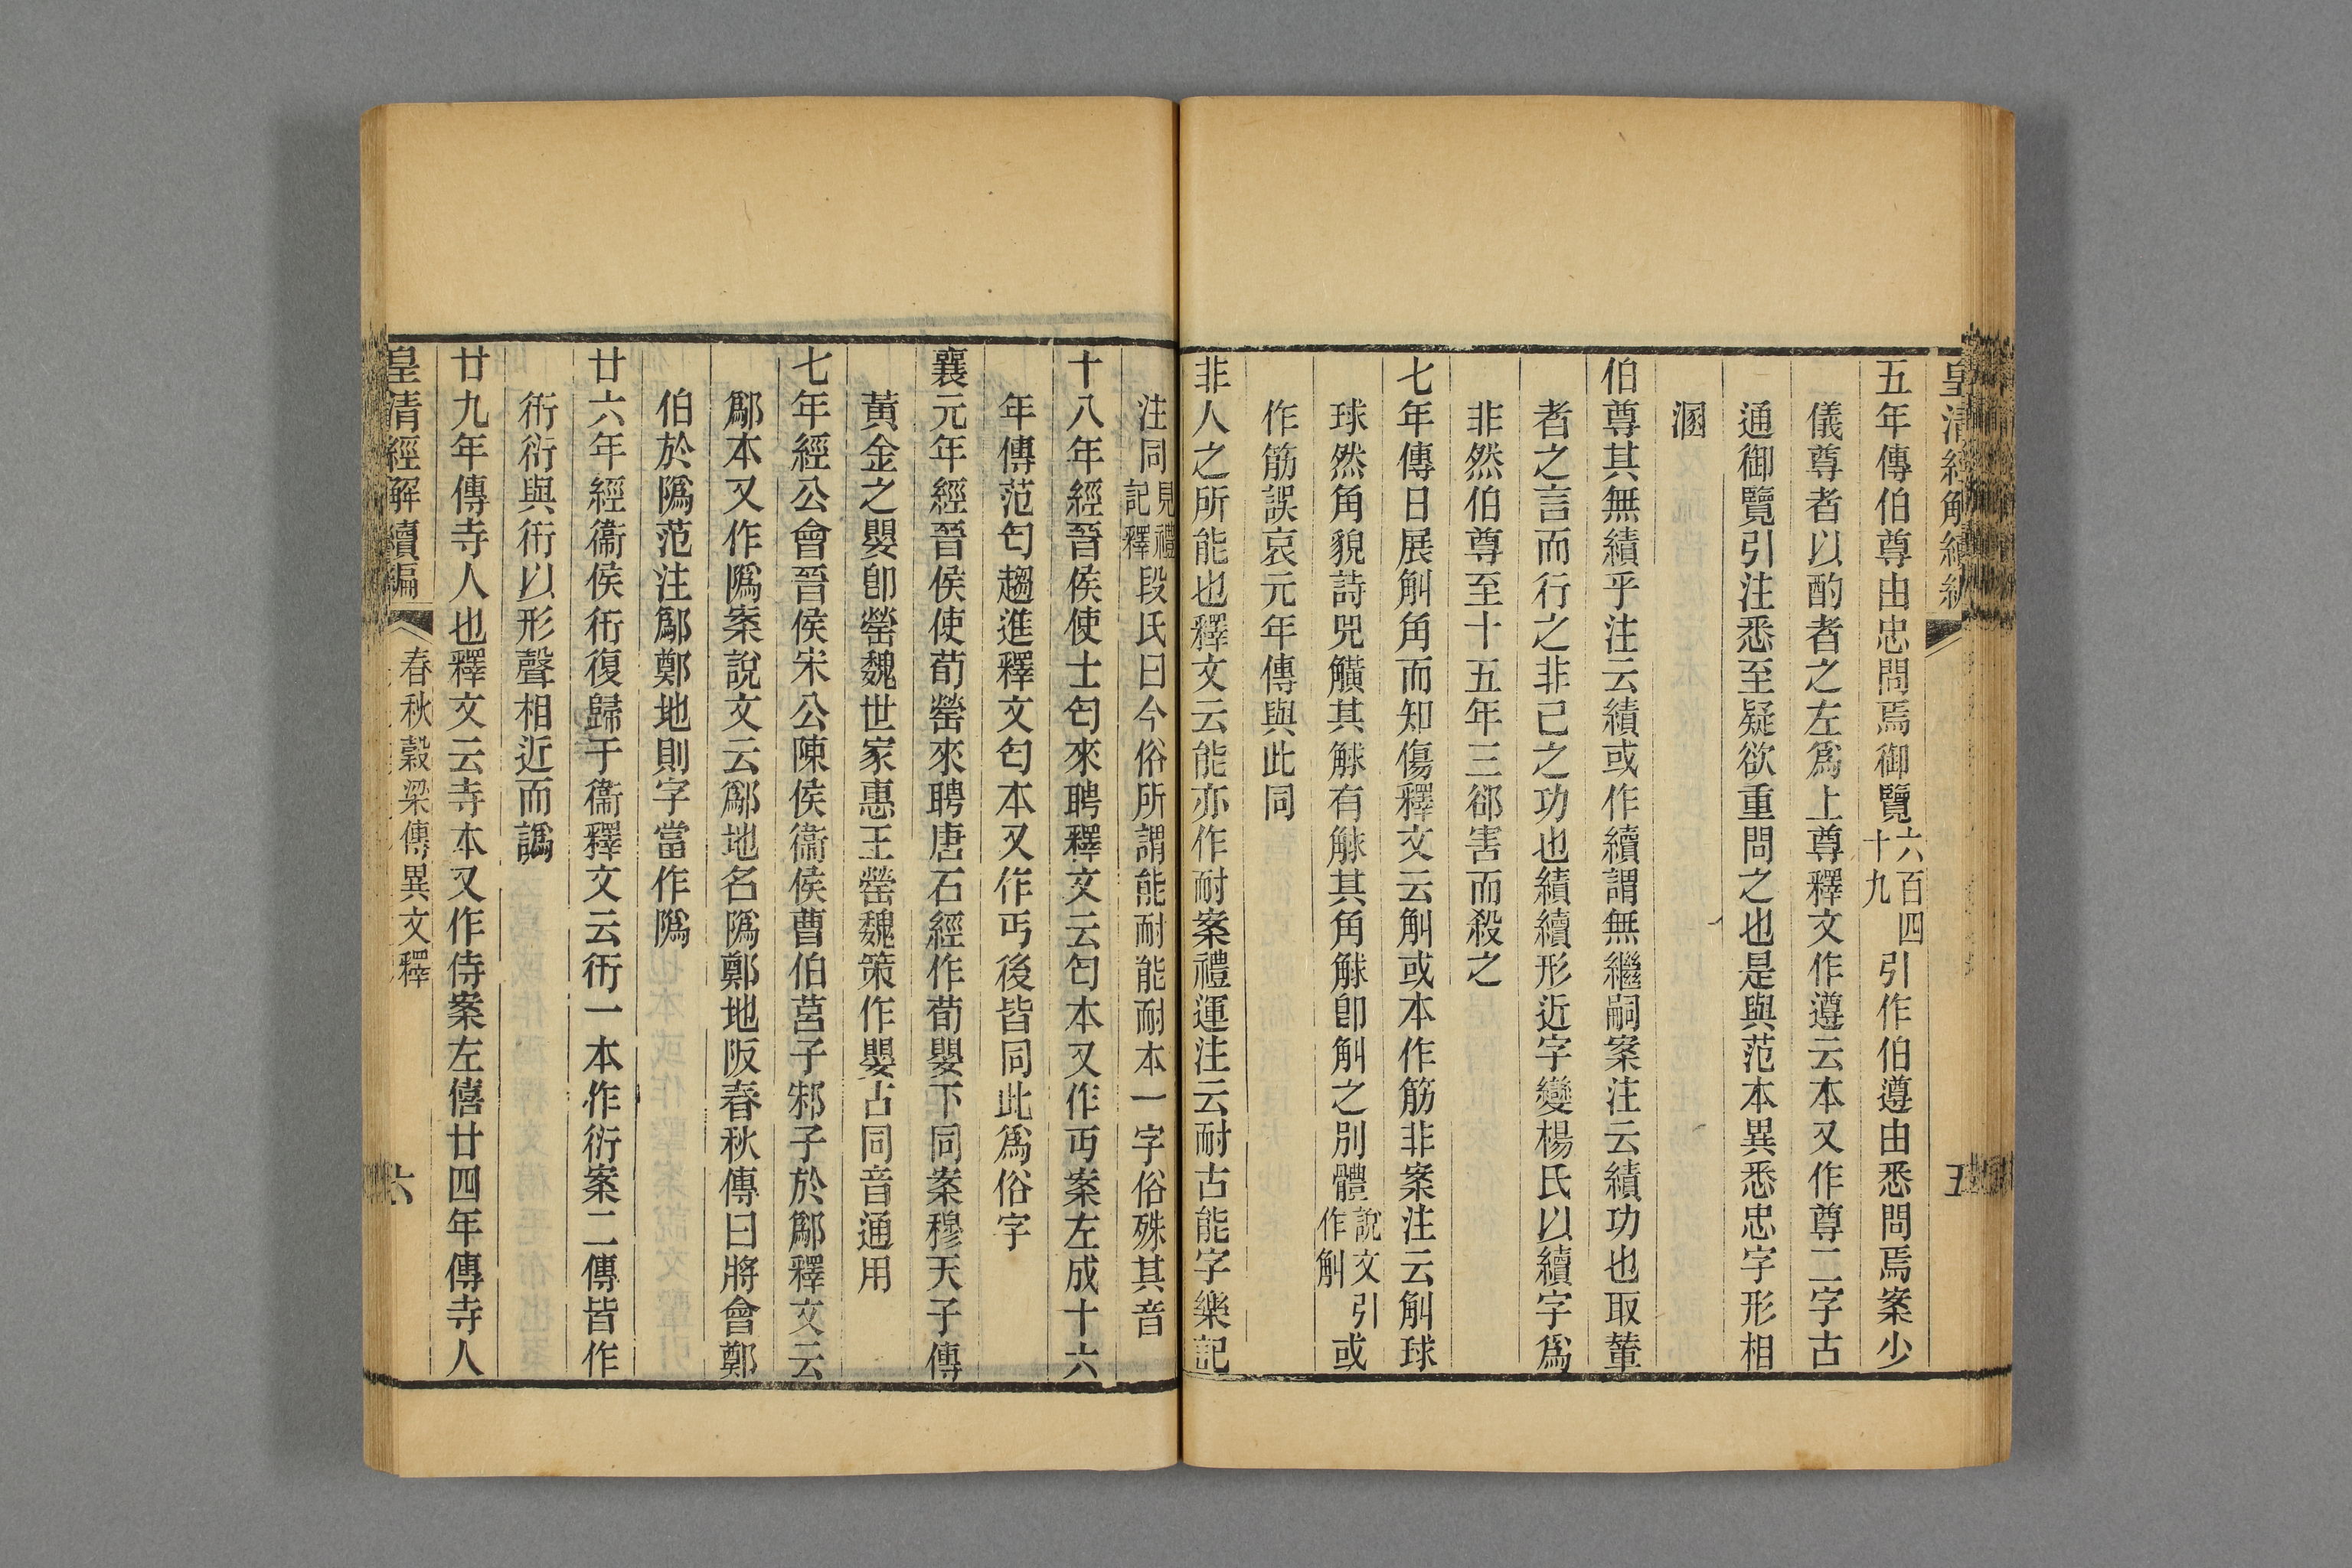 皇清經解續編
五
五年傳伯尊由忠問焉御覽六百四十九引作伯遵由悉問焉案少
儀尊者以酌者之左爲上尊釋文作遵云本又作尊二字古
通御覽引注悉至疑欲重問之也是與范本異悉忠字形相
溷
伯尊其無績乎注云績或作續謂無繼嗣案注云績功也取輦
者之言而行之非己之功也績續形近字變楊氏以續字爲
非然伯尊至十五年三郤害而殺之
七年傳日展觓角而知傷釋文云觓或本作筋非案注云觓球
球然角貌詩兕觵其觩有觩其角觩卽觓之別體說文引作觓或
作筋誤哀元年傳與此同
非人之所能也釋文云能亦作耐案禮運注云耐古能字樂記
注同見禮記釋段氏曰今俗所謂能耐能耐本一字俗殊其音
十八年經晉侯使士匄來聘釋文云匄本又作丏案左成十六
年傳范匄趨進釋文匄本又作丐後皆同此爲俗字
襄元年經晉侯使荀罃來聘唐石經作荀嬰下同案穆天子傳
黃金之嬰卽罃魏世家惠王罃魏策作嬰古同音通用
七年經公會晉侯宋公陳侯衞侯曹伯莒子邾子於鄬釋文云
鄬本又作隝案說文云鄬地名隝鄭地阪春秋傳曰將會鄭
伯於隝范注鄬鄭地則字當作隝
廿六年經衞侯衎復歸于衞釋文云衎一本作衍案二傳皆作
衎衍與衎以形聲相近而譌
廿九年傳寺人也釋文云寺本又作侍案左僖廿四年傳寺人
皇清經解續編
春秋穀梁傳異文釋
六